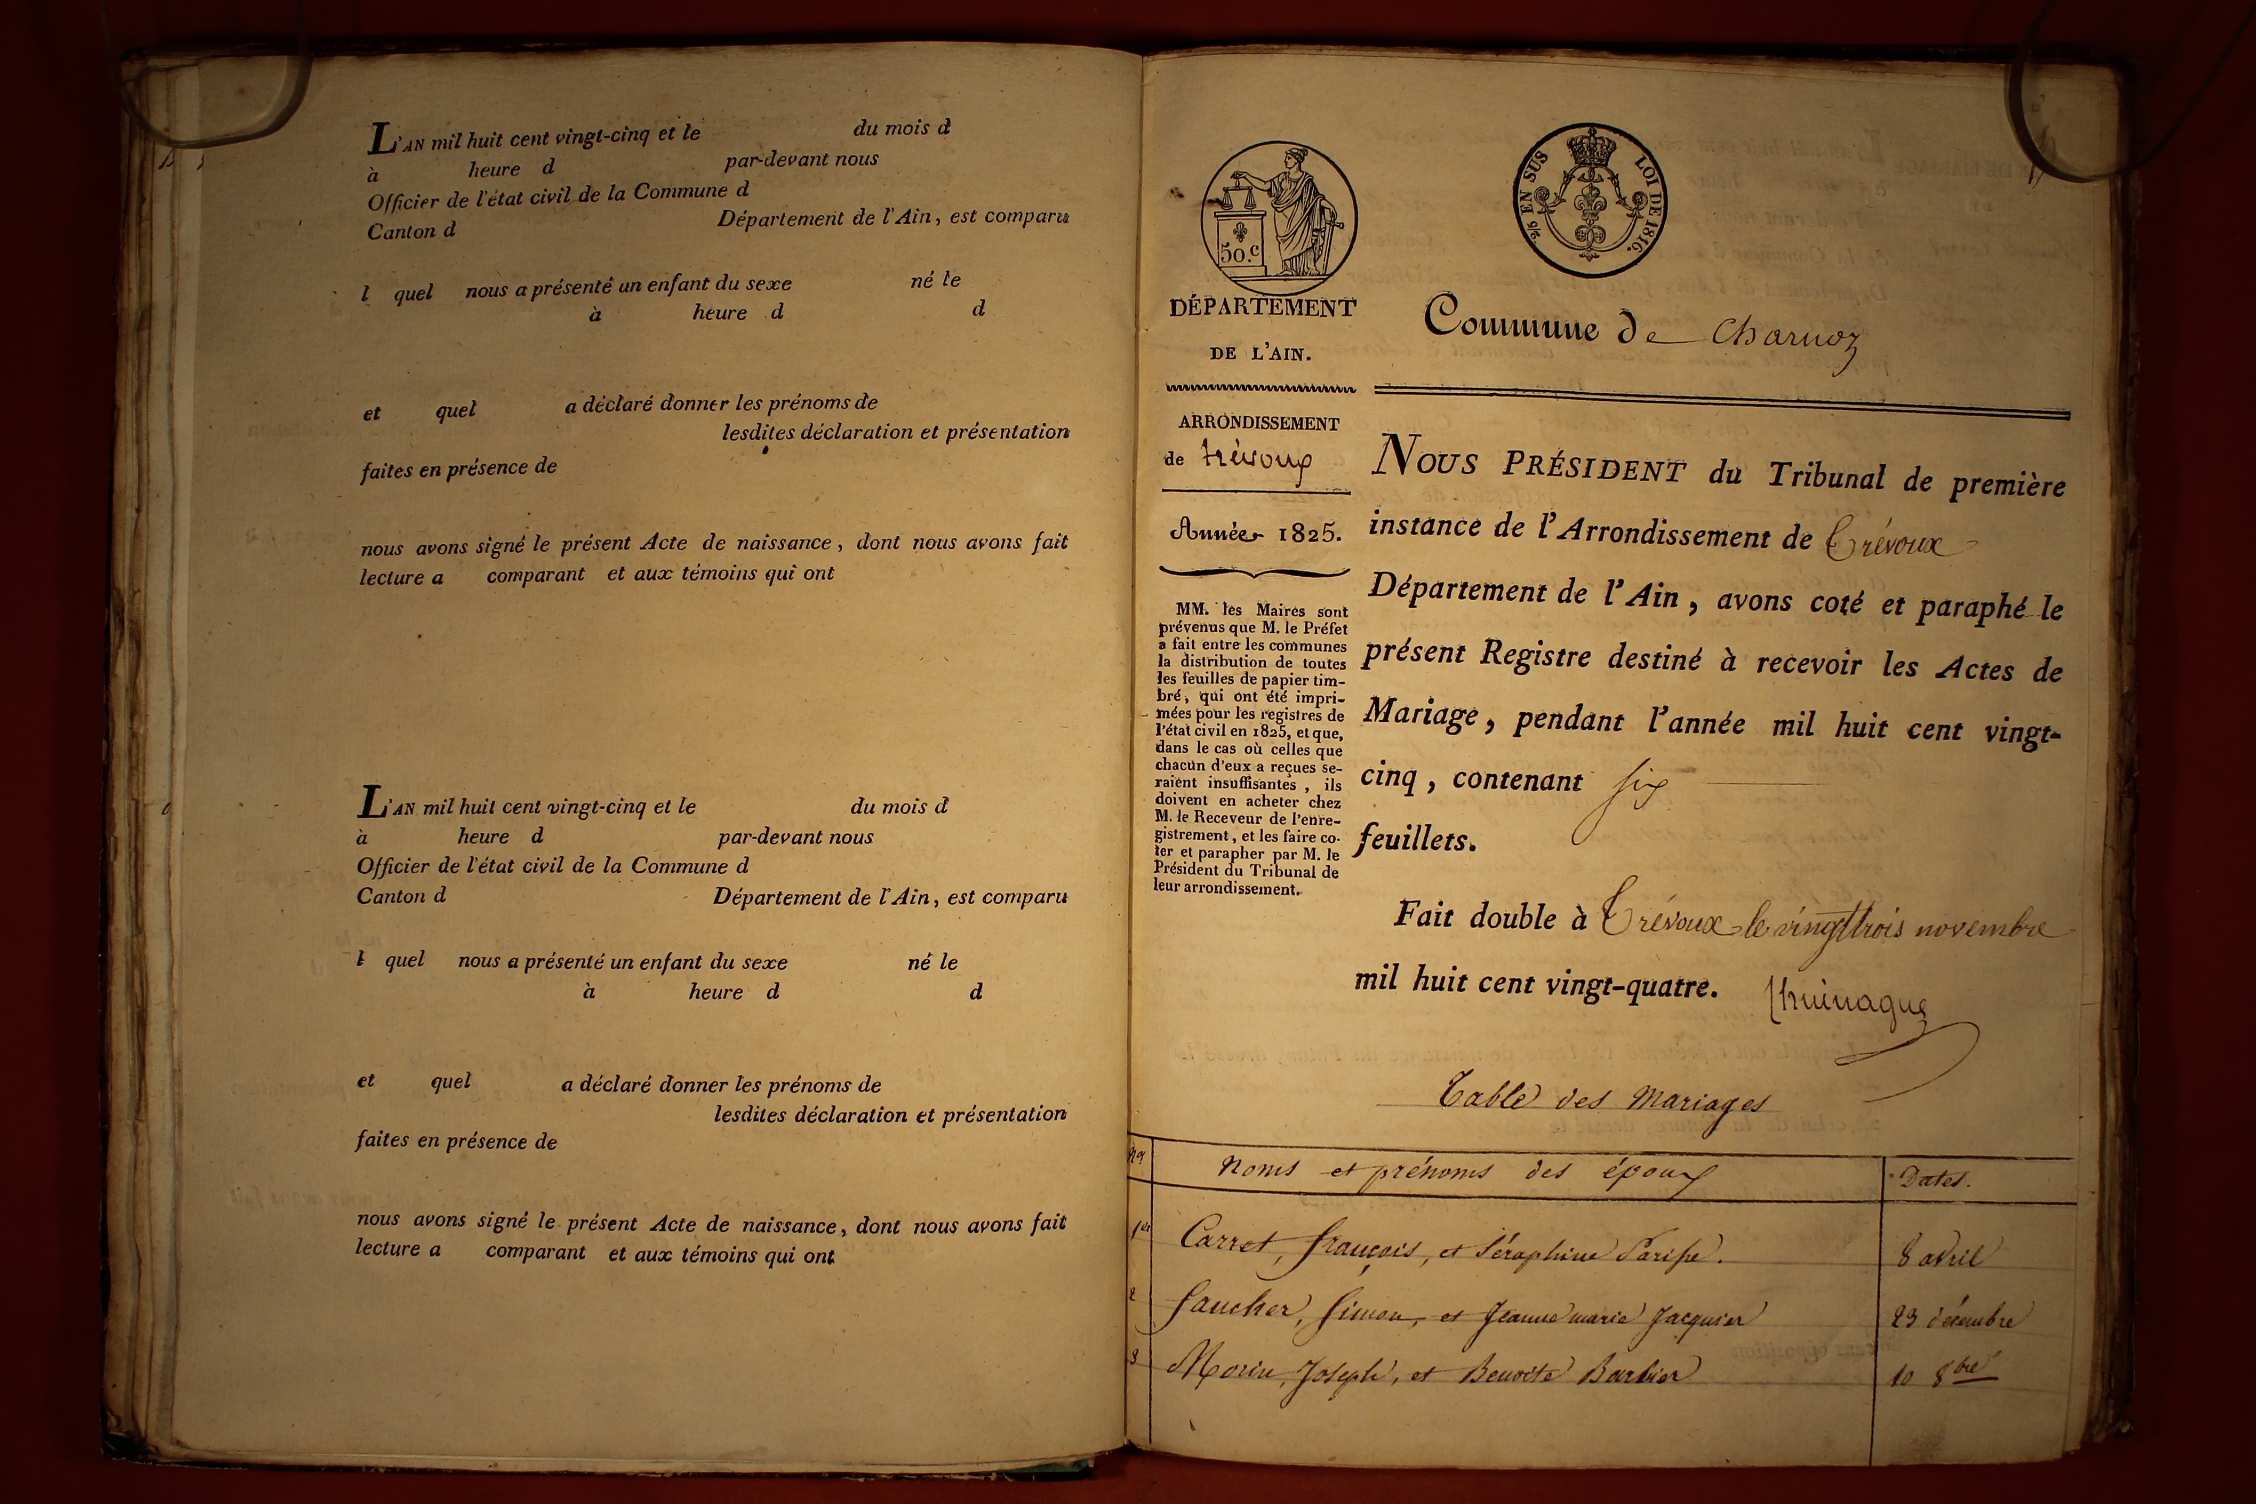 L'AN mil huit cent vingt-cinq et le du mois d
à heure d par-devant nous
Officier de l'état civil de la Commune d
Canton d Département de l'Ain, est comparu
l quel nous a présenté un enfant du sexe né le
à heure d d
et quel a déclaré donner les prénoms de
lesdites déclaration et présentation
faites en présence de
nous avons signé le présent Acte de naissance, dont nous avons fait
lecture a comparant et aux témoins qui ont
L'AN mil huit cent vingt-cinq et le du mois d
à heure d par-devant nous
Officier de l'état civil de la Commune d
Canton d Département de l'Ain, est comparu
l quel nous a présenté un enfant du sexe né le
à heure d d
et quel a déclaré donner les prénoms de
lesdites déclaration et présentation
faites en présence de
nous avons signé le présent Acte de naissance, dont nous avons fait
lecture a comparant et aux témoins qui ont
50.c
EN SUS LOI DE 1816.
DÉPARTEMENT
DE L'AIN.
Commune de Charnoz
ARRONDISSEMENT
de trévoux
Année 1825.
MM. les Maires sont
prévenus que M. le Préfet
a fait entre les communes
la distribution de toutes
les feuilles de papier tim-
bré, qui ont été impri-
mées pour les registres de
l'état civil en 1825, et que,
dans le cas où celles que
chacun d'eux a reçues se-
raient insuffisantes, ils
doivent en acheter chez
M. le Receveur de l'enre-
gistrement, et les faire co-
ter et parapher par M. le
Président du Tribunal de
leur arrondissement.
NOUS PRÉSIDENT du Tribunal de première
instance de l'Arrondissement de Trévoux
Département de l'Ain, avons coté et paraphé le
présent Registre destiné à recevoir les Actes de
Mariage, pendant l'année mil huit cent vingt-
cinq, contenant six
feuillets.
Fait double à Trévoux le vingt trois novembre
mil huit cent vingt-quatre.
Table des Mariages
Nos Noms et prénoms des époux Dates.
1er Carret, françois, et Séraphine Parise. 8 avril
2 faucher, Simon, et Jeanne marie Jacquier 23 décembre
3 Morin, Joseph, et Benoite Barbier 10 8bre